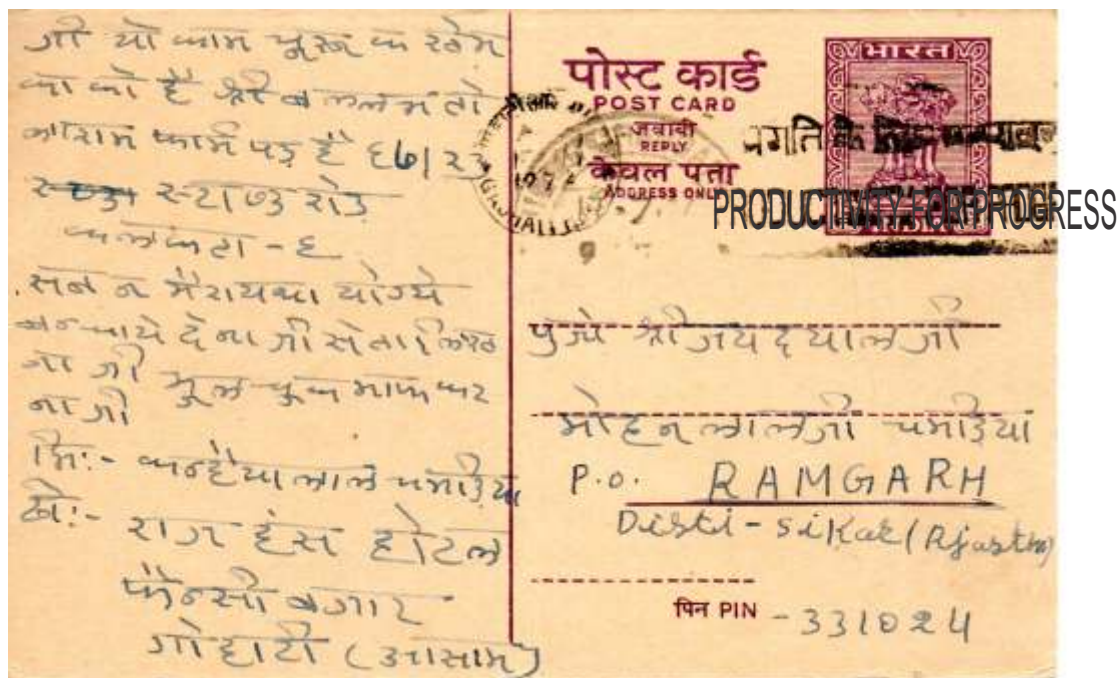 जी यो काम चुरू क खेम
का को है श्री
आराम फार्म पड़ है ६७/२३
स्टाण्ड रोड
कलकत्ता - ६
देना जी
जा जी भूल चुक माफ कर
ना जी
लि:- कन्हैया लाल चमड़िया
ठी:- राज हंस होटल
फैन्सी बजार
गोहाटी (आसाम)
भारत
पोस्ट कार्ड
POST CARD
जवाबी
REPLY
केवल पता
ADDRESS ONLY
प्रगति के लिए
PRODUCTIVITY FOR PROGRESS
पुज्ये श्री जयदयालजी
मोहनलालजी चमड़िया
P.O. RAMGARH
Disti - Sikar (Rjasthn)
पिन PIN - 331024